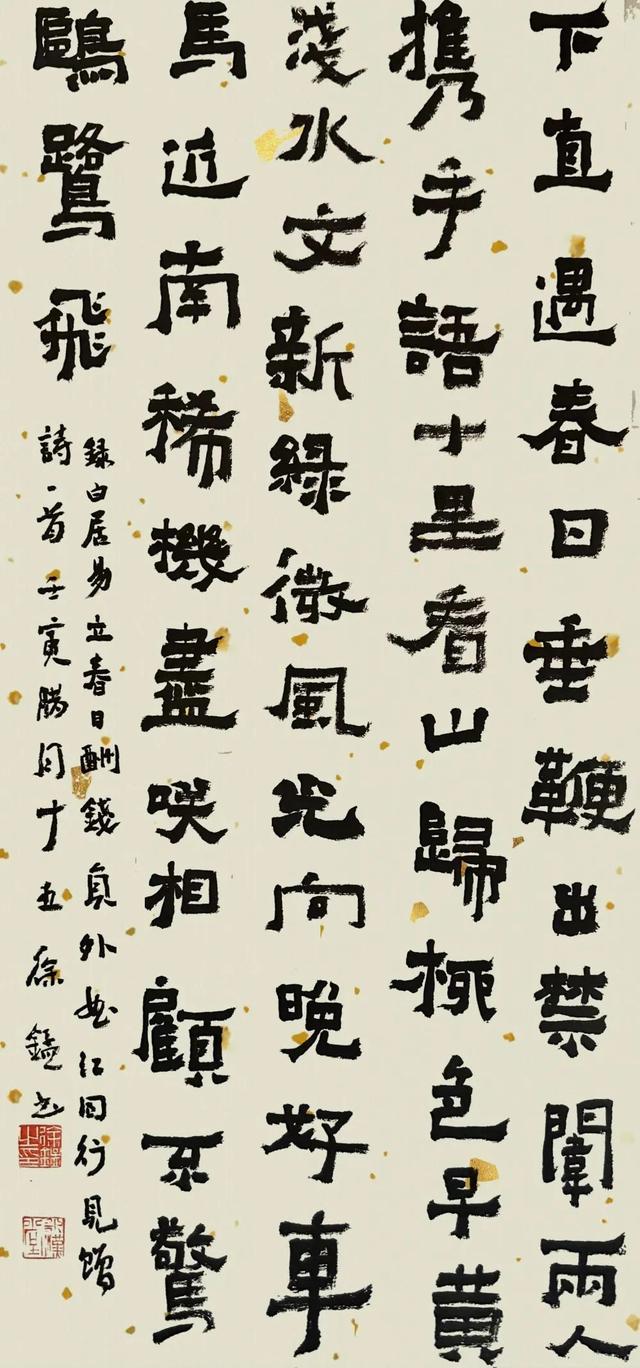 下直遇春日垂鞭出禁闈兩人
携手語十里看山歸桺色早黃
淺水文新綠微風光向晚好車
馬近南稀機盡咲相顧不驚
鷗鷺飛
錄白居易立春日酬錢員外曲江同行見贈
詩一首壬寅臈月十五徐鎰書